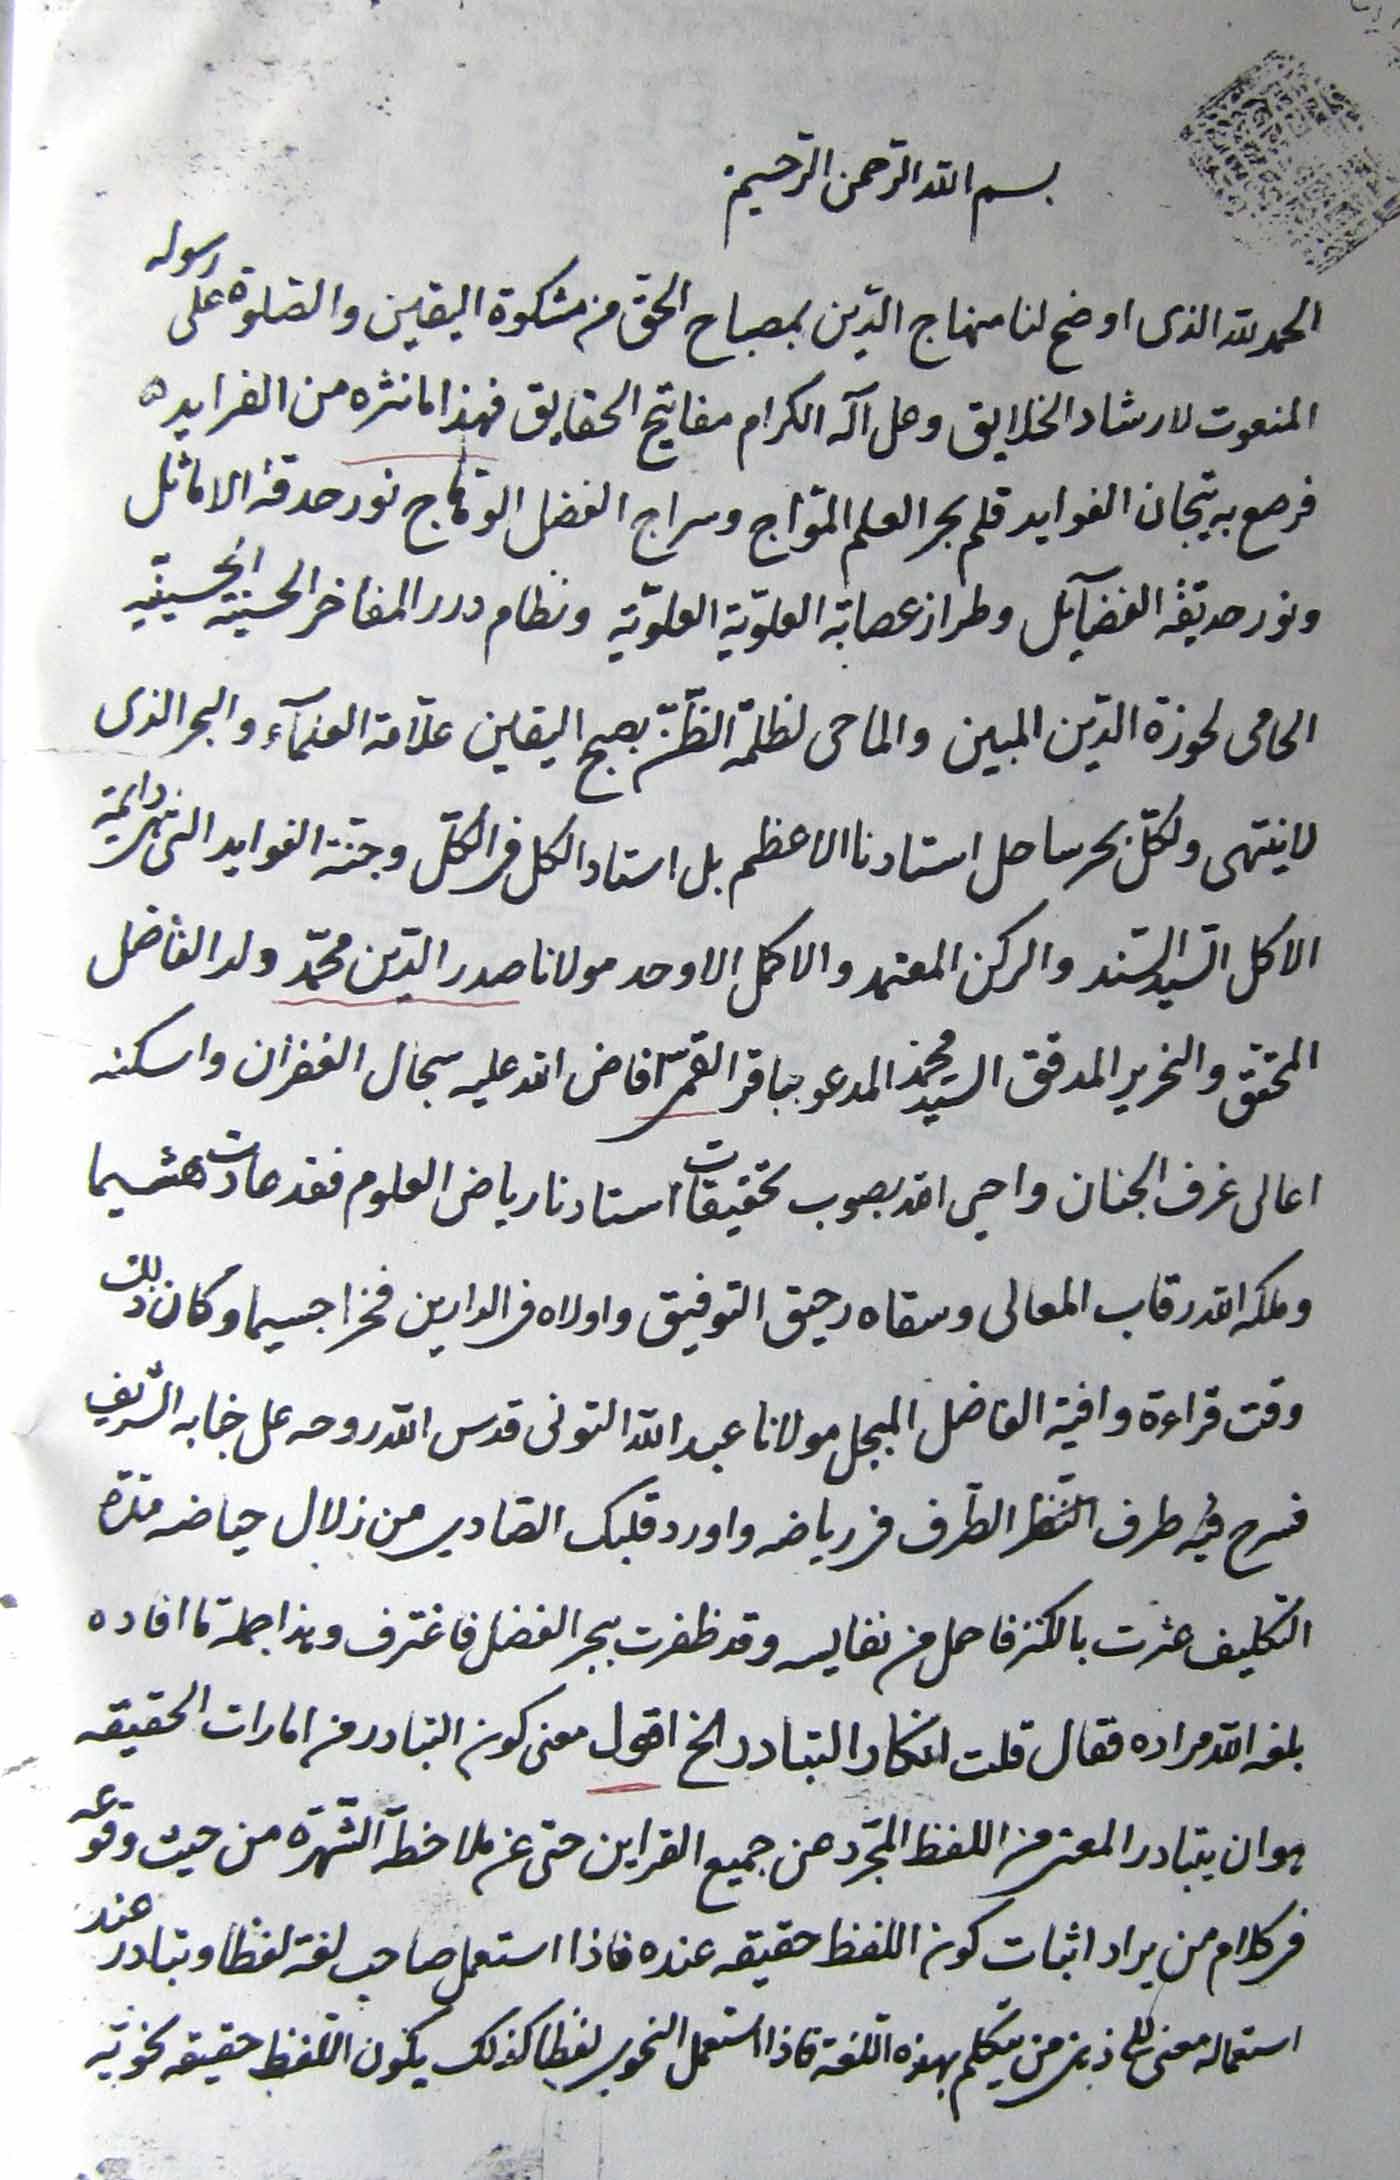 بسم الله الرحمن الرحيم
الحمد لله الذى اوضح لنا منهاج الدّين بمصباح الحقّ من مشكوة اليقين والصّلوة على رسوله
المنعوت لارشاد الخلايق وعلى آله الكرام مفاتيح الحقايق فهذا ما نثره من الفرايد
فرصع به تيجان الفوايد قلم بحر العلم الموّاج وسراج الفضل الوهّاج نور حدقة الاماثل
ونور حديقة الفضآيل وطراز عصابة العلويّة العلويّة ونظام درر المفاخر الحسنية الحسينيّة
الحامى لحوزة الدّين المبين والماحى لظلمة الظّنّ بصبح اليقين علّامة العلمآء والبحر الذى
لا ينتهى ولكلّ بحر ساحل استادنا الاعظم بل استاد الكل فى الكلّ وجنة الفوايد التى هى دائمة
الاكل السّيد السّند والركن المعتمد والاكمل الاوحد مولانا صدر الدّين محمّد ولد الفاضل
المحقق والنحرير المدقق السيد محمد المدعو بباقر القمى افاض الله عليه سجال الغفران واسكنه
اعالى غرف الجنان واحيى الله بصوب تحقيقات استادنا رياض العلوم فقد عادت هشيما
وملكه الله رقاب المعالى وسقاه رحيق التوفيق واولاه فى الدارين فخرا جسيما وكان ذلك
وقت قراءة وافية الفاضل المبجل مولانا عبد الله التونى قدس الله روحه على جنابه الشريف
فسرح فيه طرف النّظر الطّرف فى رياضه واورد قلبك الصّادى من زلال حياضه
التكليف عثرت بالكنز فاحمل من نفايسه وقد ظفرت ببحر الفضل فاغترف وهذا جملة ما افاده
بلغه الله مراده فقال قلت انكار التبادر الخ اقول معنى كون التبادر من امارات الحقيقه
هو ان يتبادر المعنى من اللفظ المجّرد عن جميع القراين حتى عن ملاحظة الشّهرة من حيث وقوعه
فى كلام من يراد اثبات كون اللفظ حقيقه عنده فاذا استعمل صاحب لغة لفظا وتبادر عند
استعماله معنى الى ذهن من يتكلم بهذه اللّغة فاذا استعمل النحوى لفظا كذلك يكون اللّفظ حقيقه نحويّه